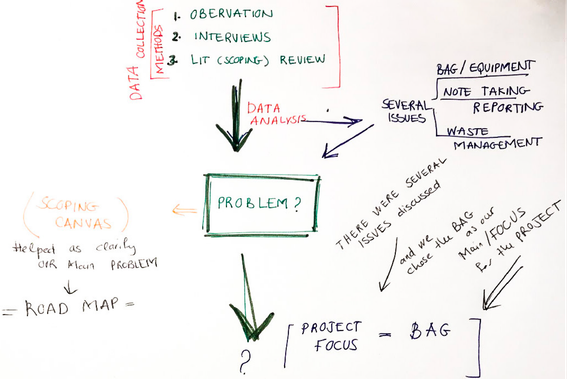 DATA COLLECTION
METHODS
1. OBERVATION
2. INTERVIEWS
3. LIT (SCOPING) REVIEW
DATA
ANALYSIS
SEVERAL
ISSUES
BAG/EQUIPMENT
NOTE TAKING
REPORTING
WASTE
MANAGEMENT
PROBLEM?
(SCOPING
CANVAS)
Helped as clarify
OUR Main PROBLEM
= ROAD MAP =
THERE WERE SEVERAL
ISSUES discussed
and we
chose the BAG as our
Main/FOCUS
for the PROJECT
?
[PROJECT
FOCUS = BAG]